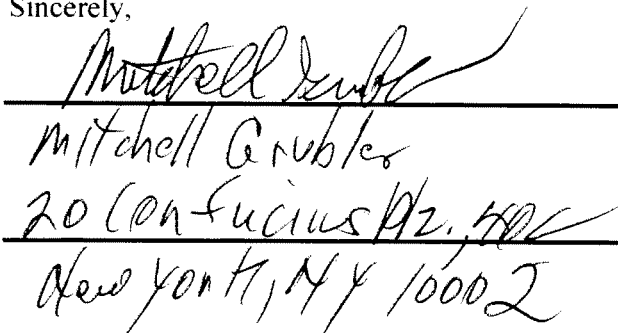 Sincerely,
Mitchell Grubler
Mitchell Grubler
20 Confucius Plz.,
New York, NY 10002